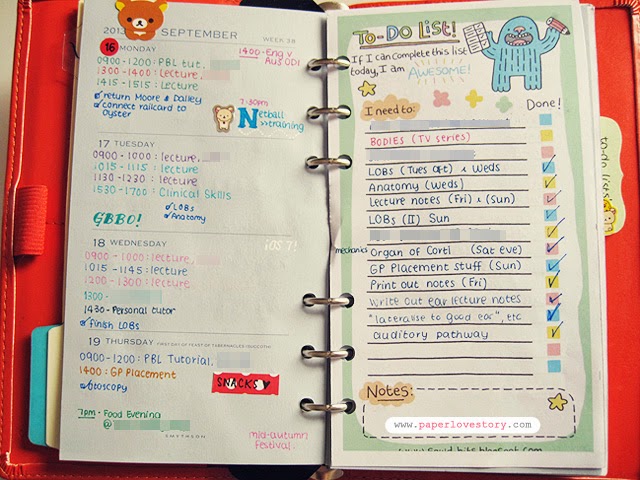 2013 SEPTEMBER WEEK 38
16 MONDAY
1400 - Eng v
Aus ODI
0900 - 1200 : PBL tut,
1300 - 1400 : Lecture,
1415 - 1515 : Lecture
return Moore & Dalley
connect railcard to
oyster
7:30pm
Netball
>> training
17 TUESDAY
0900 - 1000 : lecture,
1015 - 1115 : lecture
1130 - 1230 : lecture
1530 - 1700 : Clinical Skills
LOBs
Anatomy
GBBO!
18 WEDNESDAY
iOS 7!
0900 - 1000 : lecture,
1015 - 1145 : lecture
1200 - 1300 : lecture
1300 -
1430 - Personal tutor
finish LOBs
19 THURSDAY FIRST DAY OF FEAST OF TABERNACLES (SUCCOTH)
0900 - 1200 : PBL Tutorial,
1400 : GP Placement
otoscopy
SNACKS
7pm - Food Evening
@
SMYTHSON
mid-autumn
festival.
TO-DO LIST!
If I can complete this list
today, I am AWESOME!
I need to: Done!
BODIES (TV series)
LOBs (Tues aft) & Weds
Anatomy (Weds)
Lecture notes (Fri) & (Sun)
LOBs (II) Sun
mechanics
Organ of Corti (Sat eve)
GP Placement stuff (Sun)
Print out notes (Fri)
Write out ear lecture notes
"lateralise to good ear", etc
auditory pathway
Notes:
www.paperlovestory.com
to-do lists